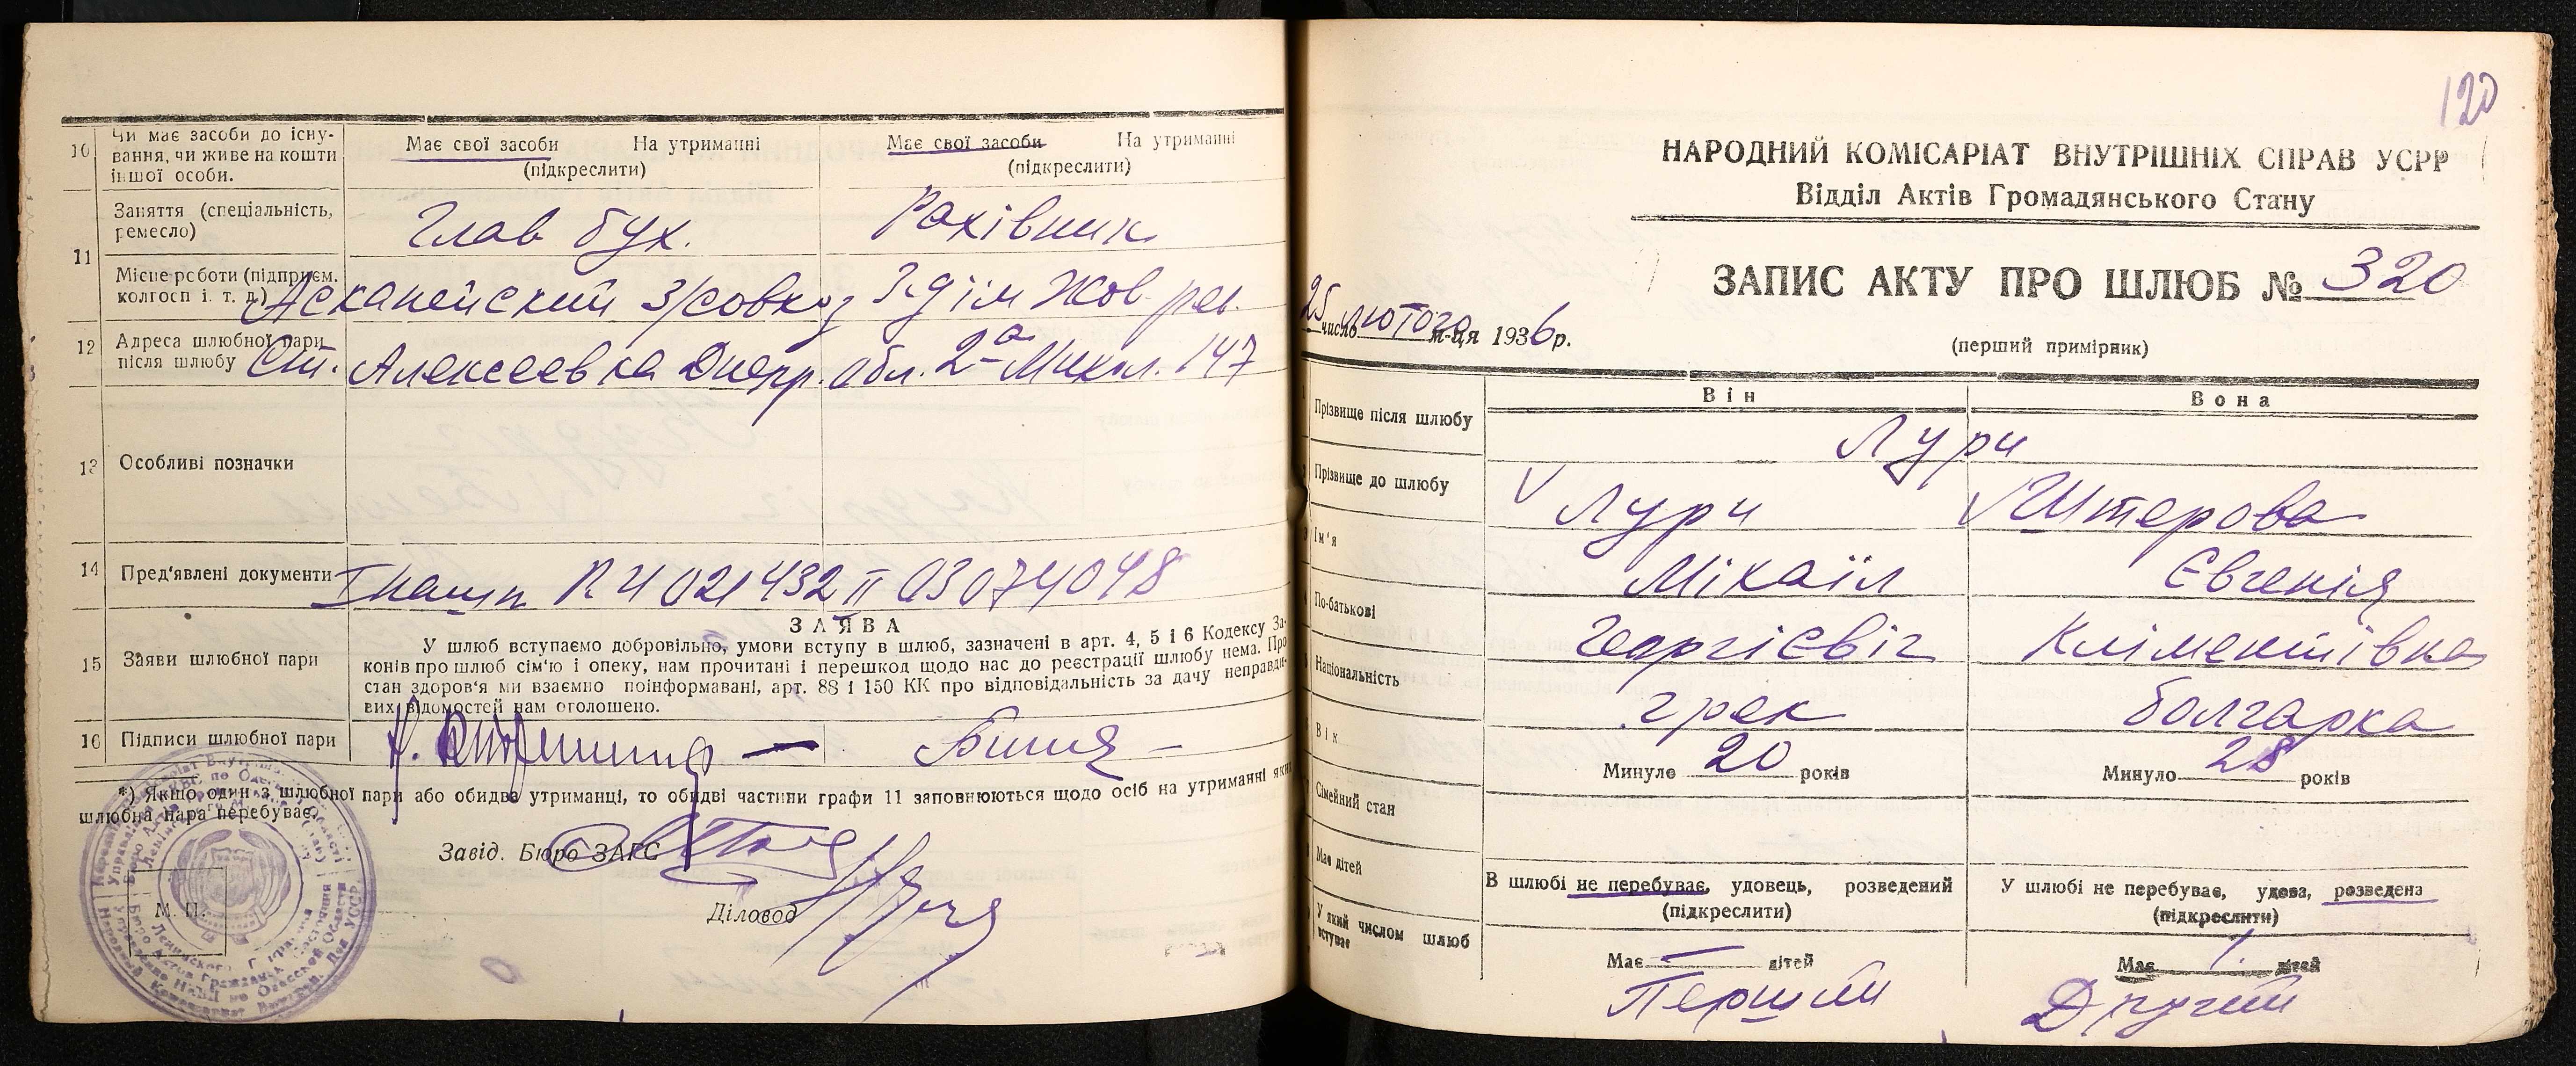 10 Чи має засоби до існу-
вання, чи живе на кошти
іншої особи.
Має свої засоби На утриманні
(підкреслити)
Має свої засоби На утриманні
(підкреслити)
11 Заняття (спеціальність,
ремесло)
Глав бух.
Рахівник
Місце роботи (підприєм.
колгосп і. т. д.)
Асканейский з/совхоз
12 Адреса шлюбної пари
після шлюбу
Ст. Алексеевка Днепр. обл. 2-а Микол. 147
13 Особливі позначки
14 Пред'явлені документи
15 Заяви шлюбної пари
ЗАЯВА
У шлюб вступаємо добровільно, умови вступу в шлюб, зазначені в арт. 4, 5 і 6 Кодексу За-
конів про шлюб сім'ю і опеку, нам прочитані і перешкод щодо нас до реєстрації шлюбу нема. Про
стан здоров'я ми взаємно поінформавані, арт. 88 і 150 КК про відповідальність за дачу неправди-
вих відомостей нам оголошено.
16 Підписи шлюбної пари
*) Якщо один з шлюбної пари або обидва утриманці, то обидві частини графи 11 заповнюються щодо осіб на утриманні яких
шлюбна пара перебуває.
Завід. Бюро ЗАГС
Діловод
М. П.
120
НАРОДНИЙ КОМІСАРІАТ ВНУТРІШНІХ СПРАВ УСРР
Відділ Актів Громадянського Стану
ЗАПИС АКТУ ПРО ШЛЮБ № 320
25 число лютого м-ця 1936 р.
(перший примірник)
Він Вона
Прізвище після шлюбу
Лури
Прізвище до шлюбу
Лури Штерова
Ім'я
Міхаіл Євгенія
По-батькові
Георгієвіч Кліментіївна
Національність
грек болгарка
Вік
Минуло 20 років Минуло 28 років
Сімейний стан
В шлюбі не перебуває, удовець, розведений
(підкреслити)
У шлюбі не перебуває, удова, розведена
(підкреслити)
Має дітей
Має — дітей Має 1. дітей
У який числом шлюб
вступає
Перший Другий